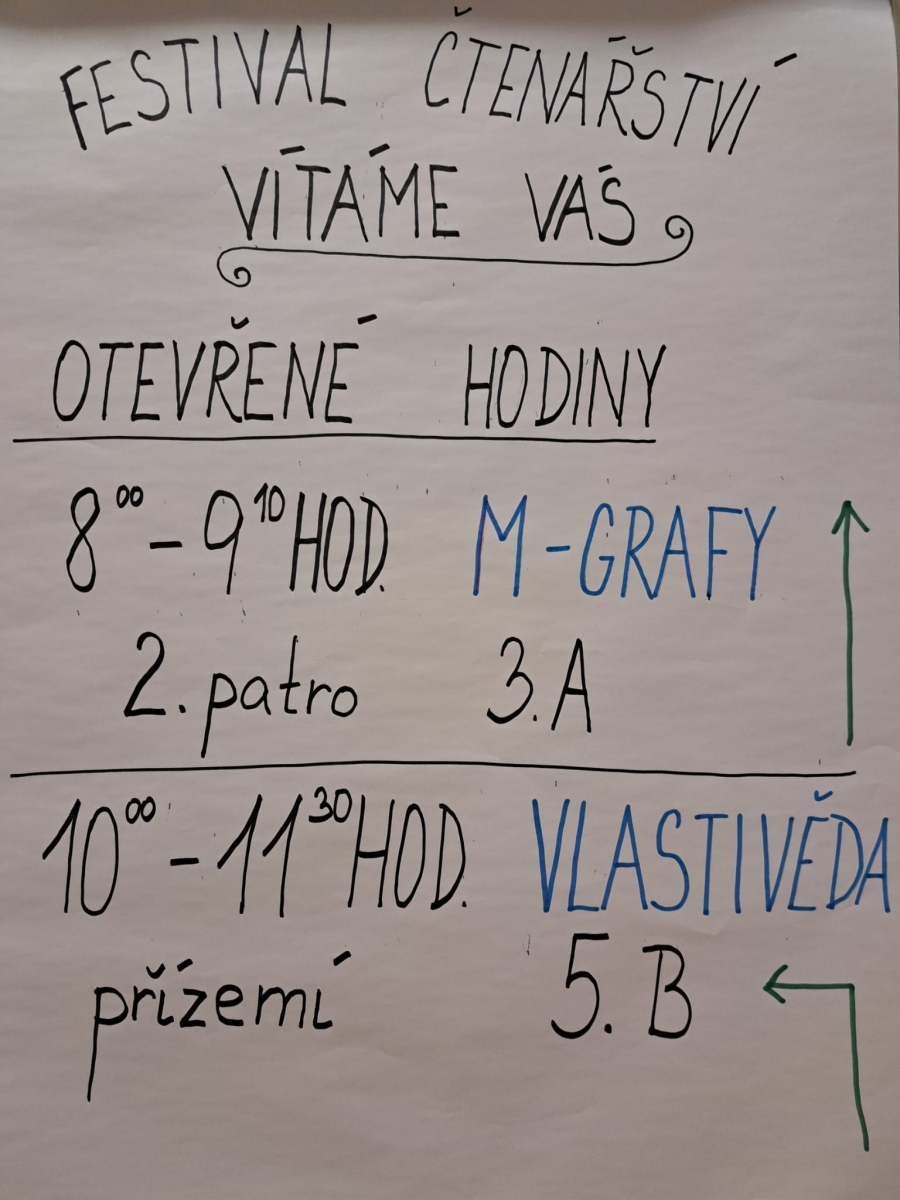 FESTIVAL ČTENÁŘSTVÍ
VÍTÁME VÁS
OTEVŘENÉ HODINY
8⁰⁰ - 9¹⁰ HOD. M-GRAFY
2. patro 3. A
10⁰⁰ - 11³⁰ HOD. VLASTIVĚDA
přízemí 5. B